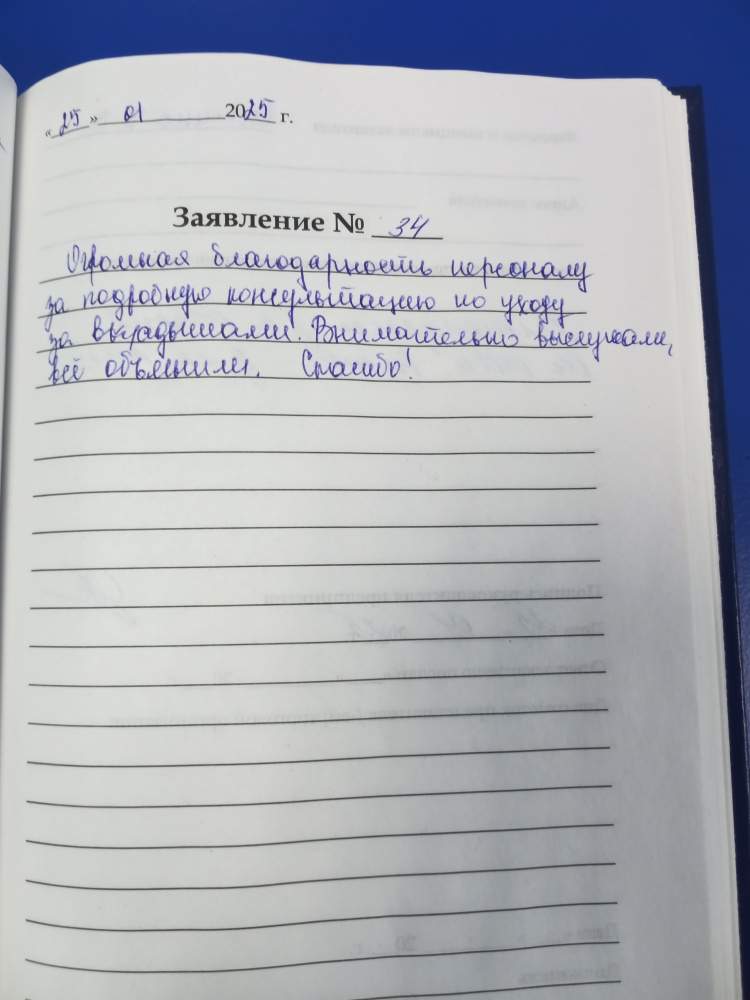 «25» 01 2025 г.
Заявление № 34
Огромная благодарность персоналу
за подробную консультацию по уходу
за вкладышами. Внимательно выслушали,
всё объяснили. Спасибо!